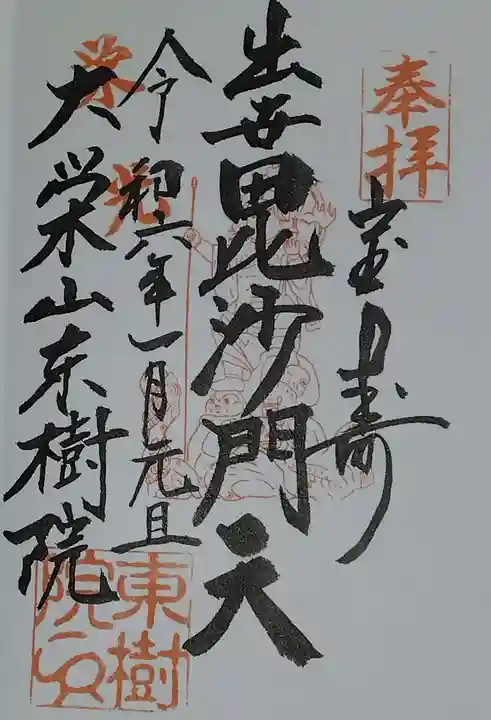 奉拝
宝寿
出世毘沙門天
令和六年一月元旦
大栄山东樹院
東樹院